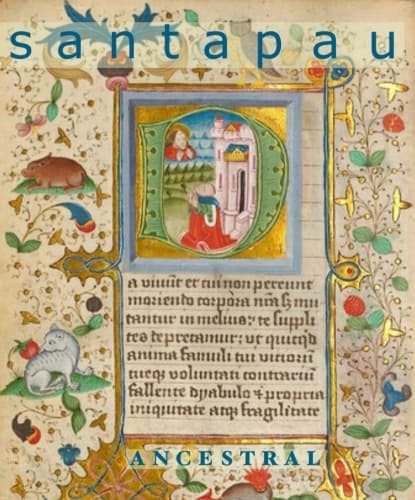 santapau
a vivũt et cui non pereunt
moriendo corpora nr̃a sʒ mu
tantur in melius: te suppli
tes deprecamur: ut quicq̃d
anima famuli tui vicioruʒ
tueq; voluntati contrariũ
fallente dyabulo ⁊ propria
iniquitate atq; fragilitate
ANCESTRAL